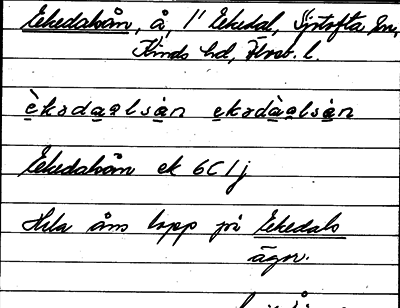 Ekedalsån, å, i Ekedal, Sjötofta sn,
Kinds hd, Älvsb. l.
èkədaalsån ekədàalsån
Ekedalsån ek 6C1j
Hela åns lopp på Ekedals
ägor.